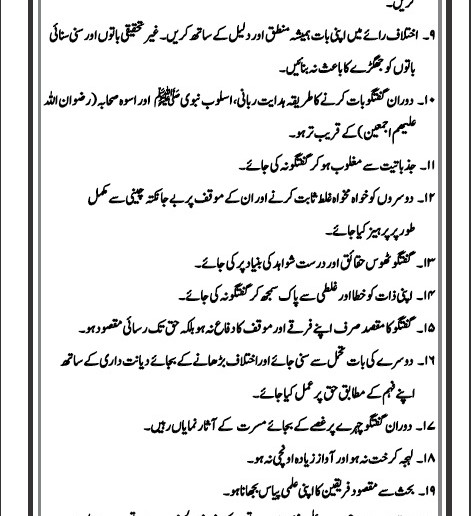 کریں۔
۹۔ اختلاف رائے میں اپنی بات ہمیشہ منطق اور دلیل کے ساتھ کریں۔ غیر تحقیقی باتوں اور سنی سنائی
باتوں کو جھگڑے کا باعث نہ بنائیں۔
۱۰۔ دوران گفتگو بات کرنے کا طریقہ ہدایت ربانی، اسلوب نبوی ﷺ اور اسوہ صحابہ (رضوان اللہ
علیھم اجمعین) کے قریب تر ہو۔
۱۱۔ جذباتیت سے مغلوب ہو کر گفتگو نہ کی جائے۔
۱۲۔ دوسروں کو خواہ مخواہ غلط ثابت کرنے اور ان کے موقف پر بے جا نکتہ چینی سے مکمل
طور پر پرہیز کیا جائے۔
۱۳۔ گفتگو ٹھوس حقائق اور درست شواہد کی بنیاد پر کی جائے۔
۱۴۔ اپنی ذات کو خطا اور غلطی سے پاک سمجھ کر گفتگو نہ کی جائے۔
۱۵۔ گفتگو کا مقصد صرف اپنے فرقے اور موقف کا دفاع نہ ہو بلکہ حق تک رسائی مقصود ہو۔
۱۶۔ دوسرے کی بات تحمل سے سنی جائے اور اختلاف بڑھانے کے بجائے دیانت داری کے ساتھ
اپنے فہم کے مطابق حق پر عمل کیا جائے۔
۱۷۔ دوران گفتگو چہرے پر غصے کے بجائے مسرت کے آثار نمایاں رہیں۔
۱۸۔ لہجہ کرخت نہ ہو اور آواز زیادہ اونچی نہ ہو۔
۱۹۔ بحث سے مقصود فریقین کا اپنی علمی پیاس بجھانا ہو۔